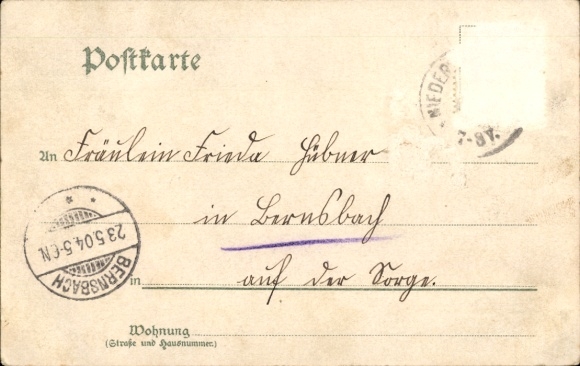 Postkarte
NIEDER
7-8V.
An Fräulein Frieda Hübner
in Bernsbach
23.5.04.5-6N.
BERNSBACH
in auf der Sorge.
Wohnung
(Straße und Hausnummer.)